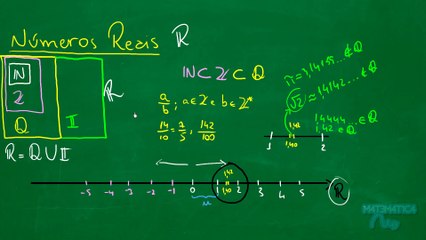 Números Reais ℝ
ℕ
ℤ
ℚ
𝕀
ℝ
ℝ = ℚ ∪ 𝕀
ℕ ⊂ ℤ ⊂ ℚ
a/b ; a ∈ ℤ e b ∈ ℤ*
14/10 = 7/5 , 142/100
√2 = 1,4142... ∉ ℚ
1,4444... ∈ ℚ
1,42 ∈ ℚ
1,42
1 1,40 2
1,42
-5 -4 -3 -2 -1 0 1 1,40 2 3 4 5 ℝ
MATEMÁTICA